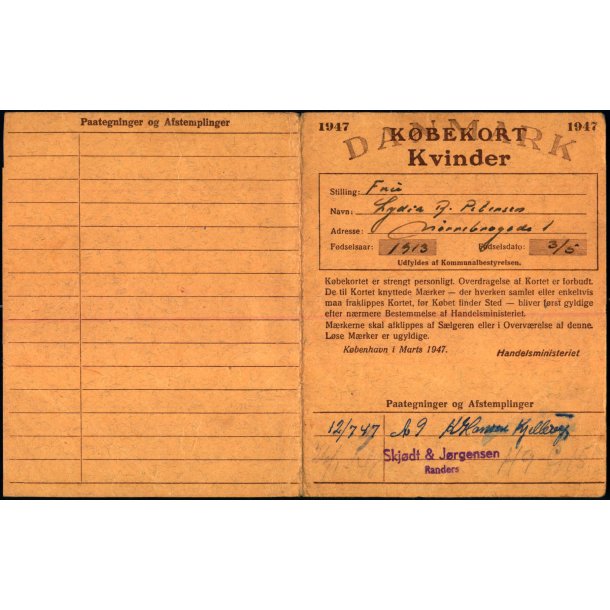 Paategninger og Afstemplinger
1947 DANMARK 1947
KØBEKORT
Kvinder
Stilling: Fru
Navn: Lydia R. Petersen
Adresse: Nørrebrogade 1
Fødselsaar: 1913 Fødselsdato: 3/5
Udfyldes af Kommunalbestyrelsen.
Købekortet er strengt personligt. Overdragelse af Kortet er forbudt.
De til Kortet knyttede Mærker — der hverken samlet eller enkeltvis
maa fraklippes Kortet, før Købet finder Sted — bliver først gyldige
efter nærmere Bestemmelse af Handelsministeriet.
Mærkerne skal afklippes af Sælgeren eller i Overværelse af denne.
Løse Mærker er ugyldige.
København i Marts 1947. Handelsministeriet
Paategninger og Afstemplinger
12/7 47 A9 K Hansen Kjellerup
Skjødt & Jørgensen
Randers